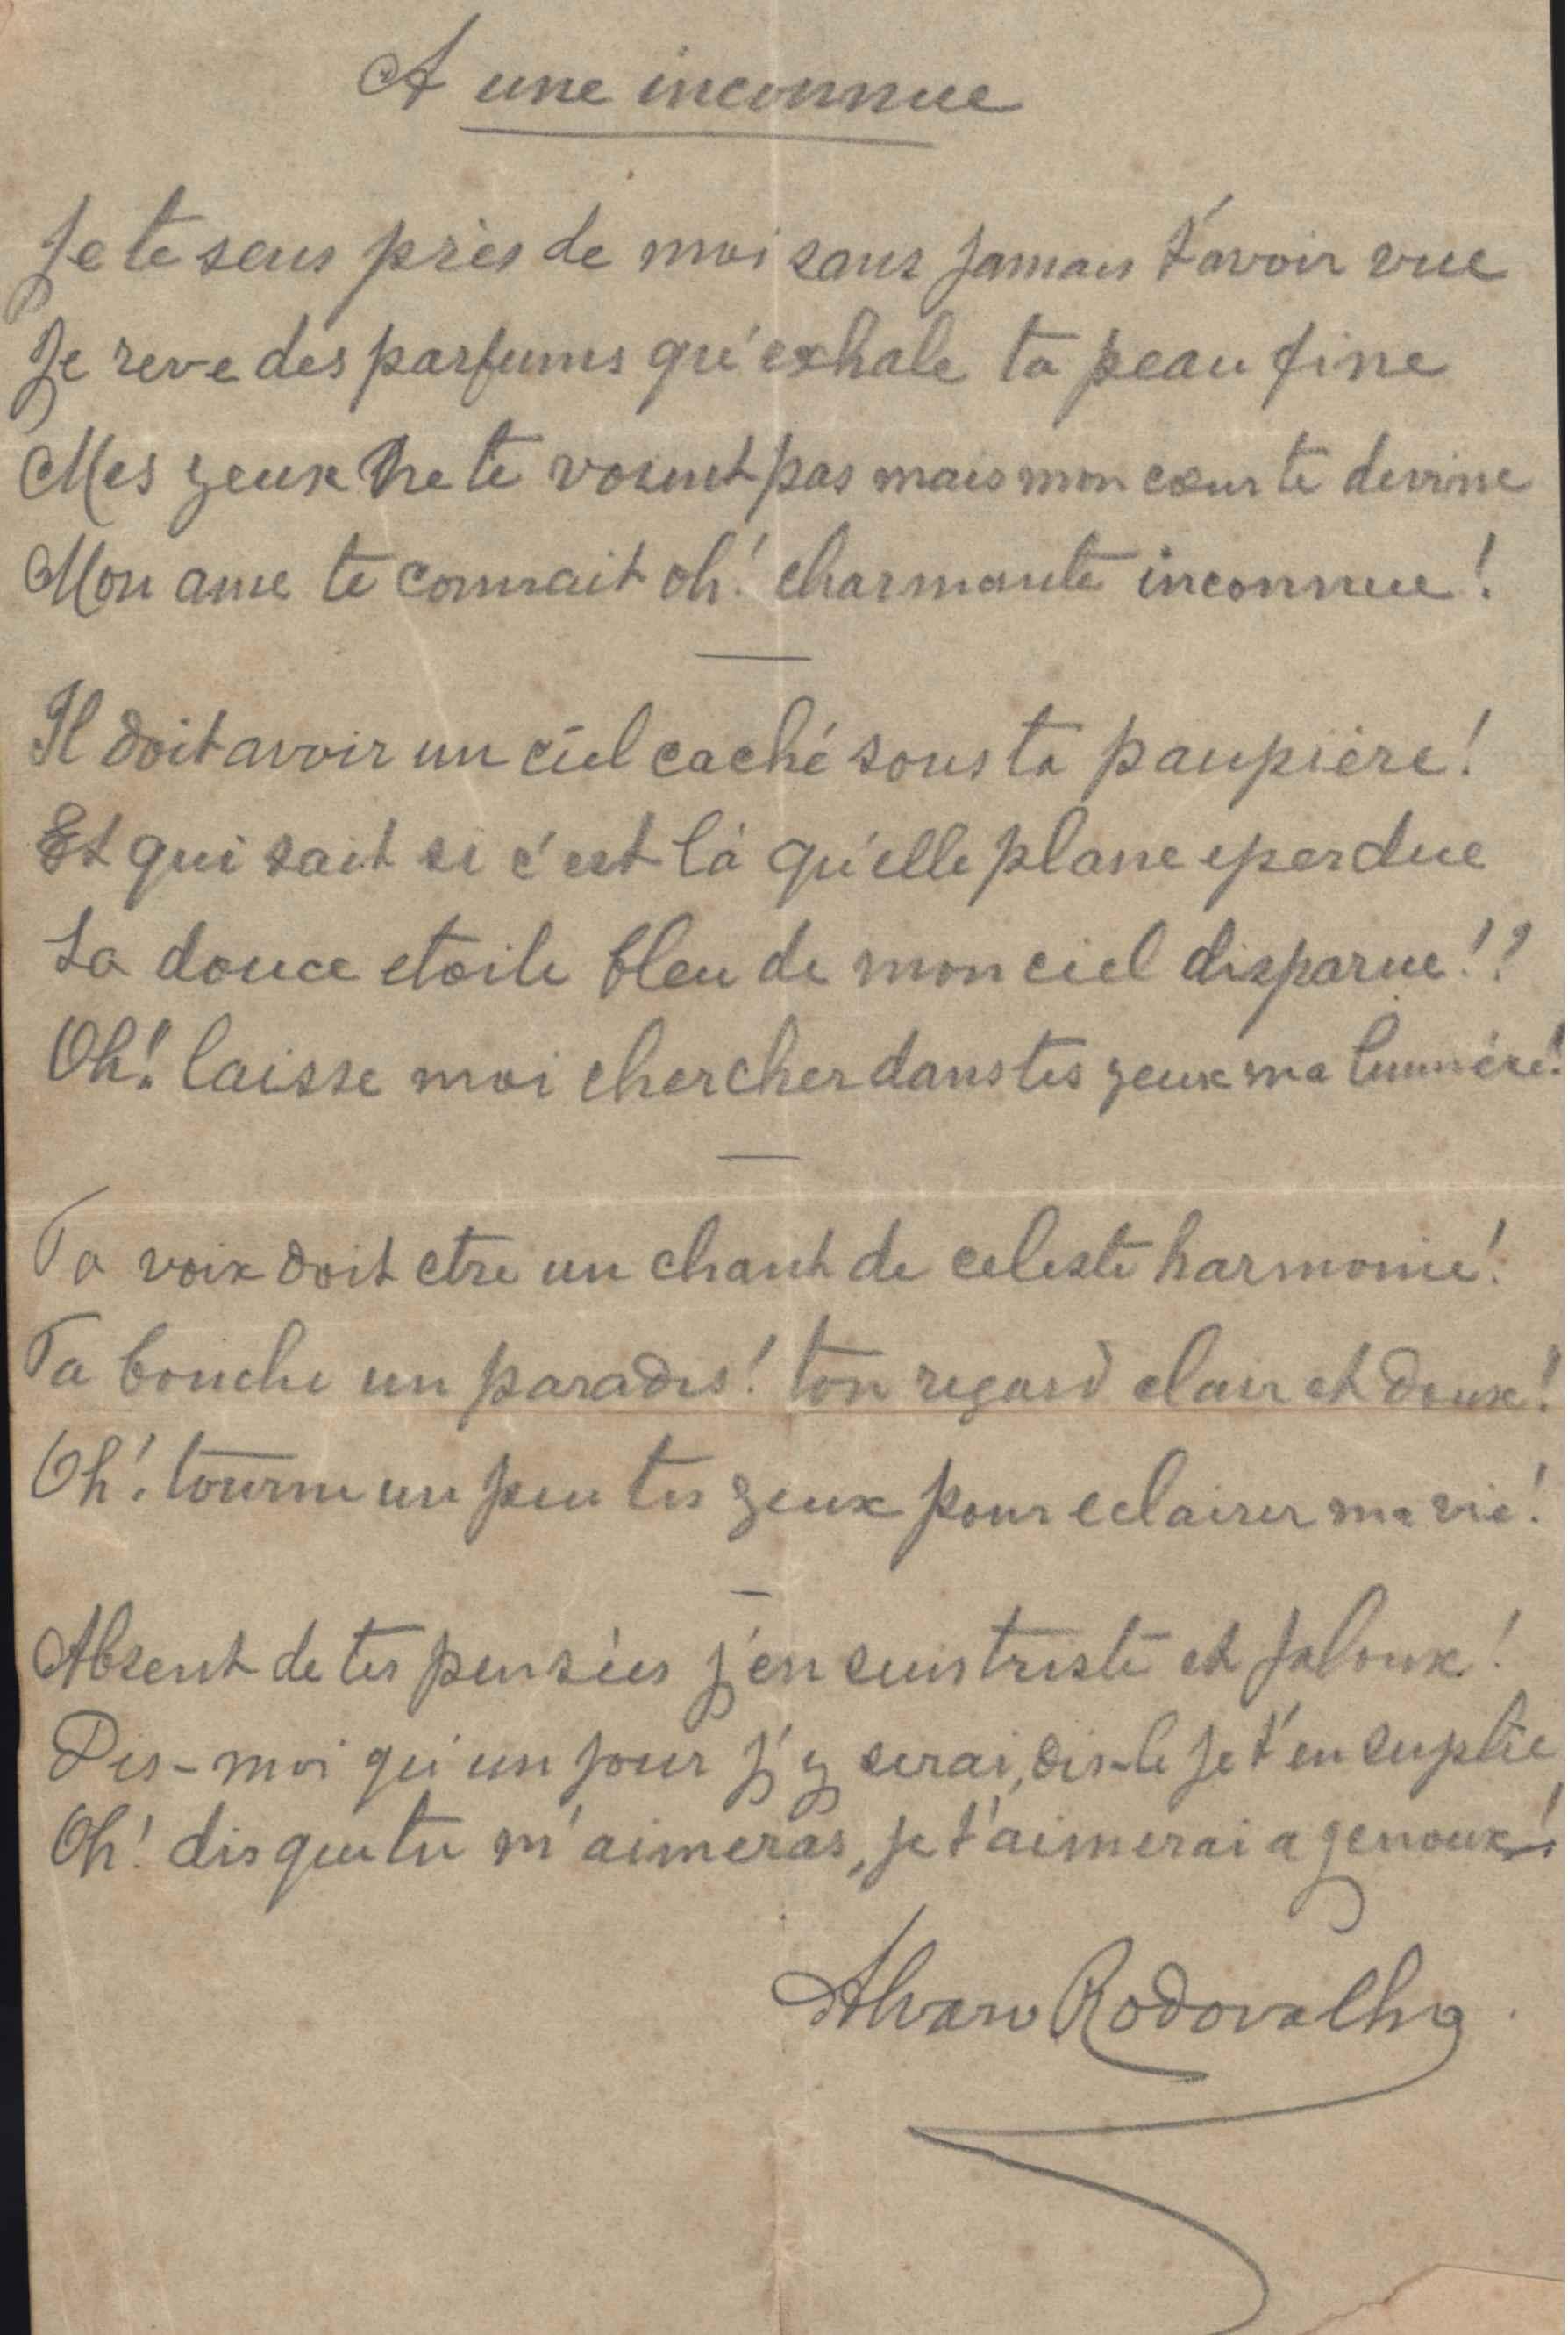 A une inconnue
Je te sens près de moi sans jamais t'avoir vue
Je reve des parfums qu'exhale ta peau fine
Mes yeux ne te voient pas mais mon cœur te devine
Mon ame te connait oh! charmante inconnue!
Il doit avoir un ciel caché sous ta paupière!
Et qui sait si c'est là qu'elle plane eperdue
La douce etoile bleu de mon ciel disparue!?
Oh! laisse moi chercher dans tes yeux ma lumière!
Ta voix doit etre un chant de celeste harmonie!
Ta bouche un paradis! ton regard clair et doux!
Oh! tourne un peu tes yeux pour eclairer ma vie!
Absent de tes pensées j'en suis triste et jaloux!
Dis-moi qu'un jour j'y serai, dis-le je t'en suplie
Oh! dis que tu m'aimeras, je t'aimerai a genoux!
Alvaro Rodovalho